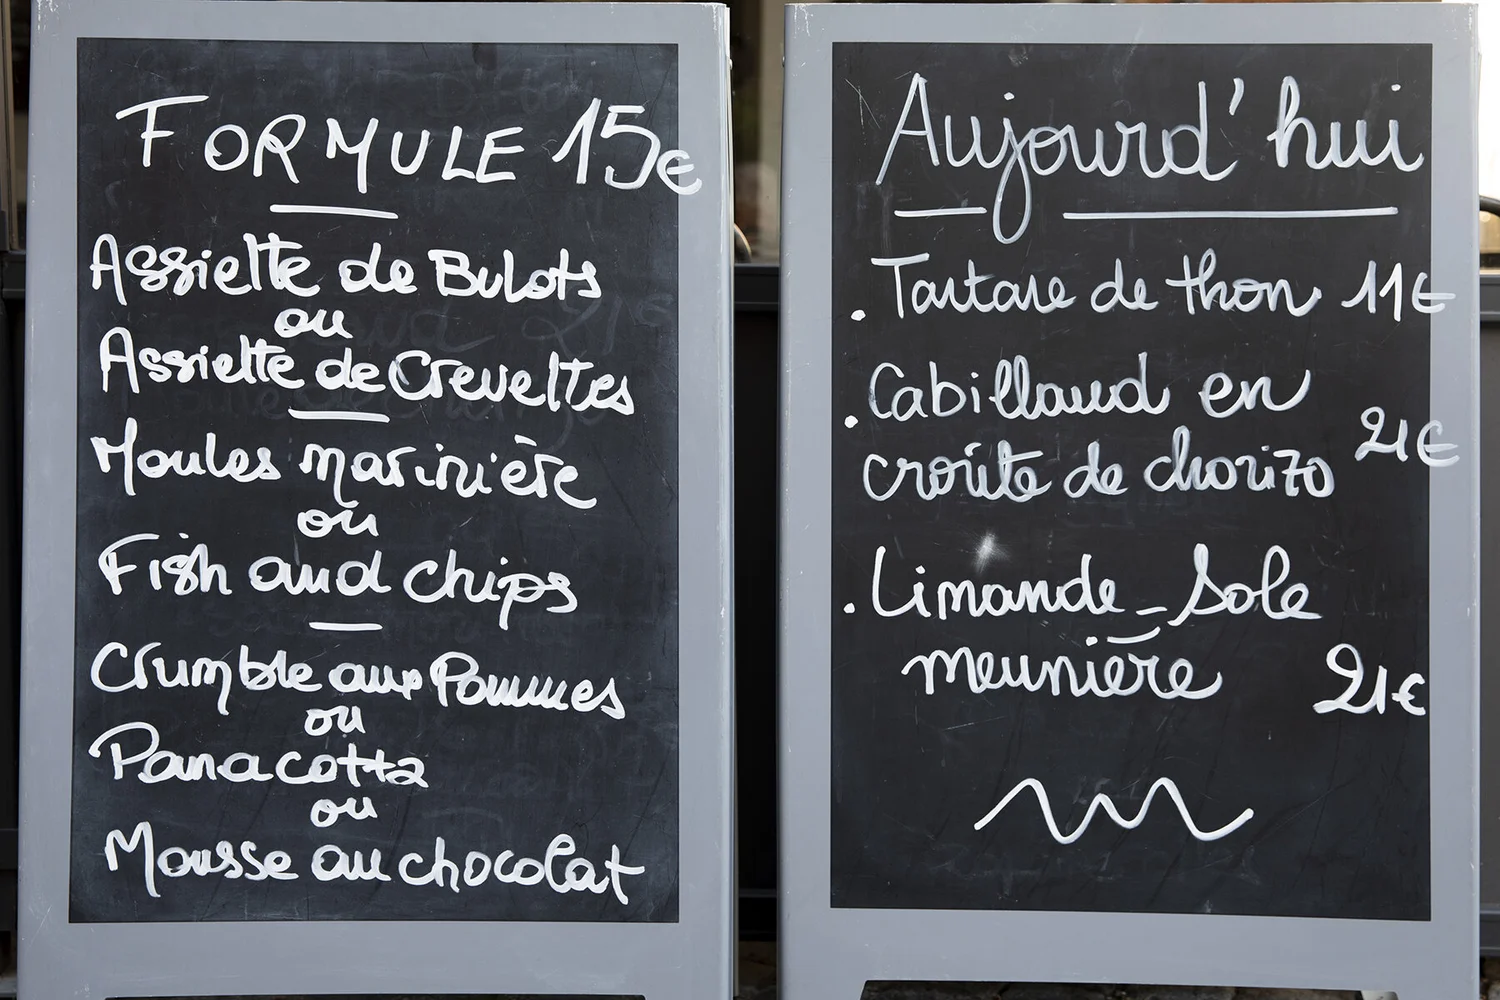 FORMULE 15€
Assiette de Bulots
ou
Assiette de Crevettes
Moules marinière
ou
Fish and chips
Crumble aux Pommes
ou
Panacotta
ou
Mousse au chocolat
Aujourd'hui
. Tartare de thon 11€
. Cabillaud en
croûte de chorizo 21€
. Limande_Sole
meunière 21€